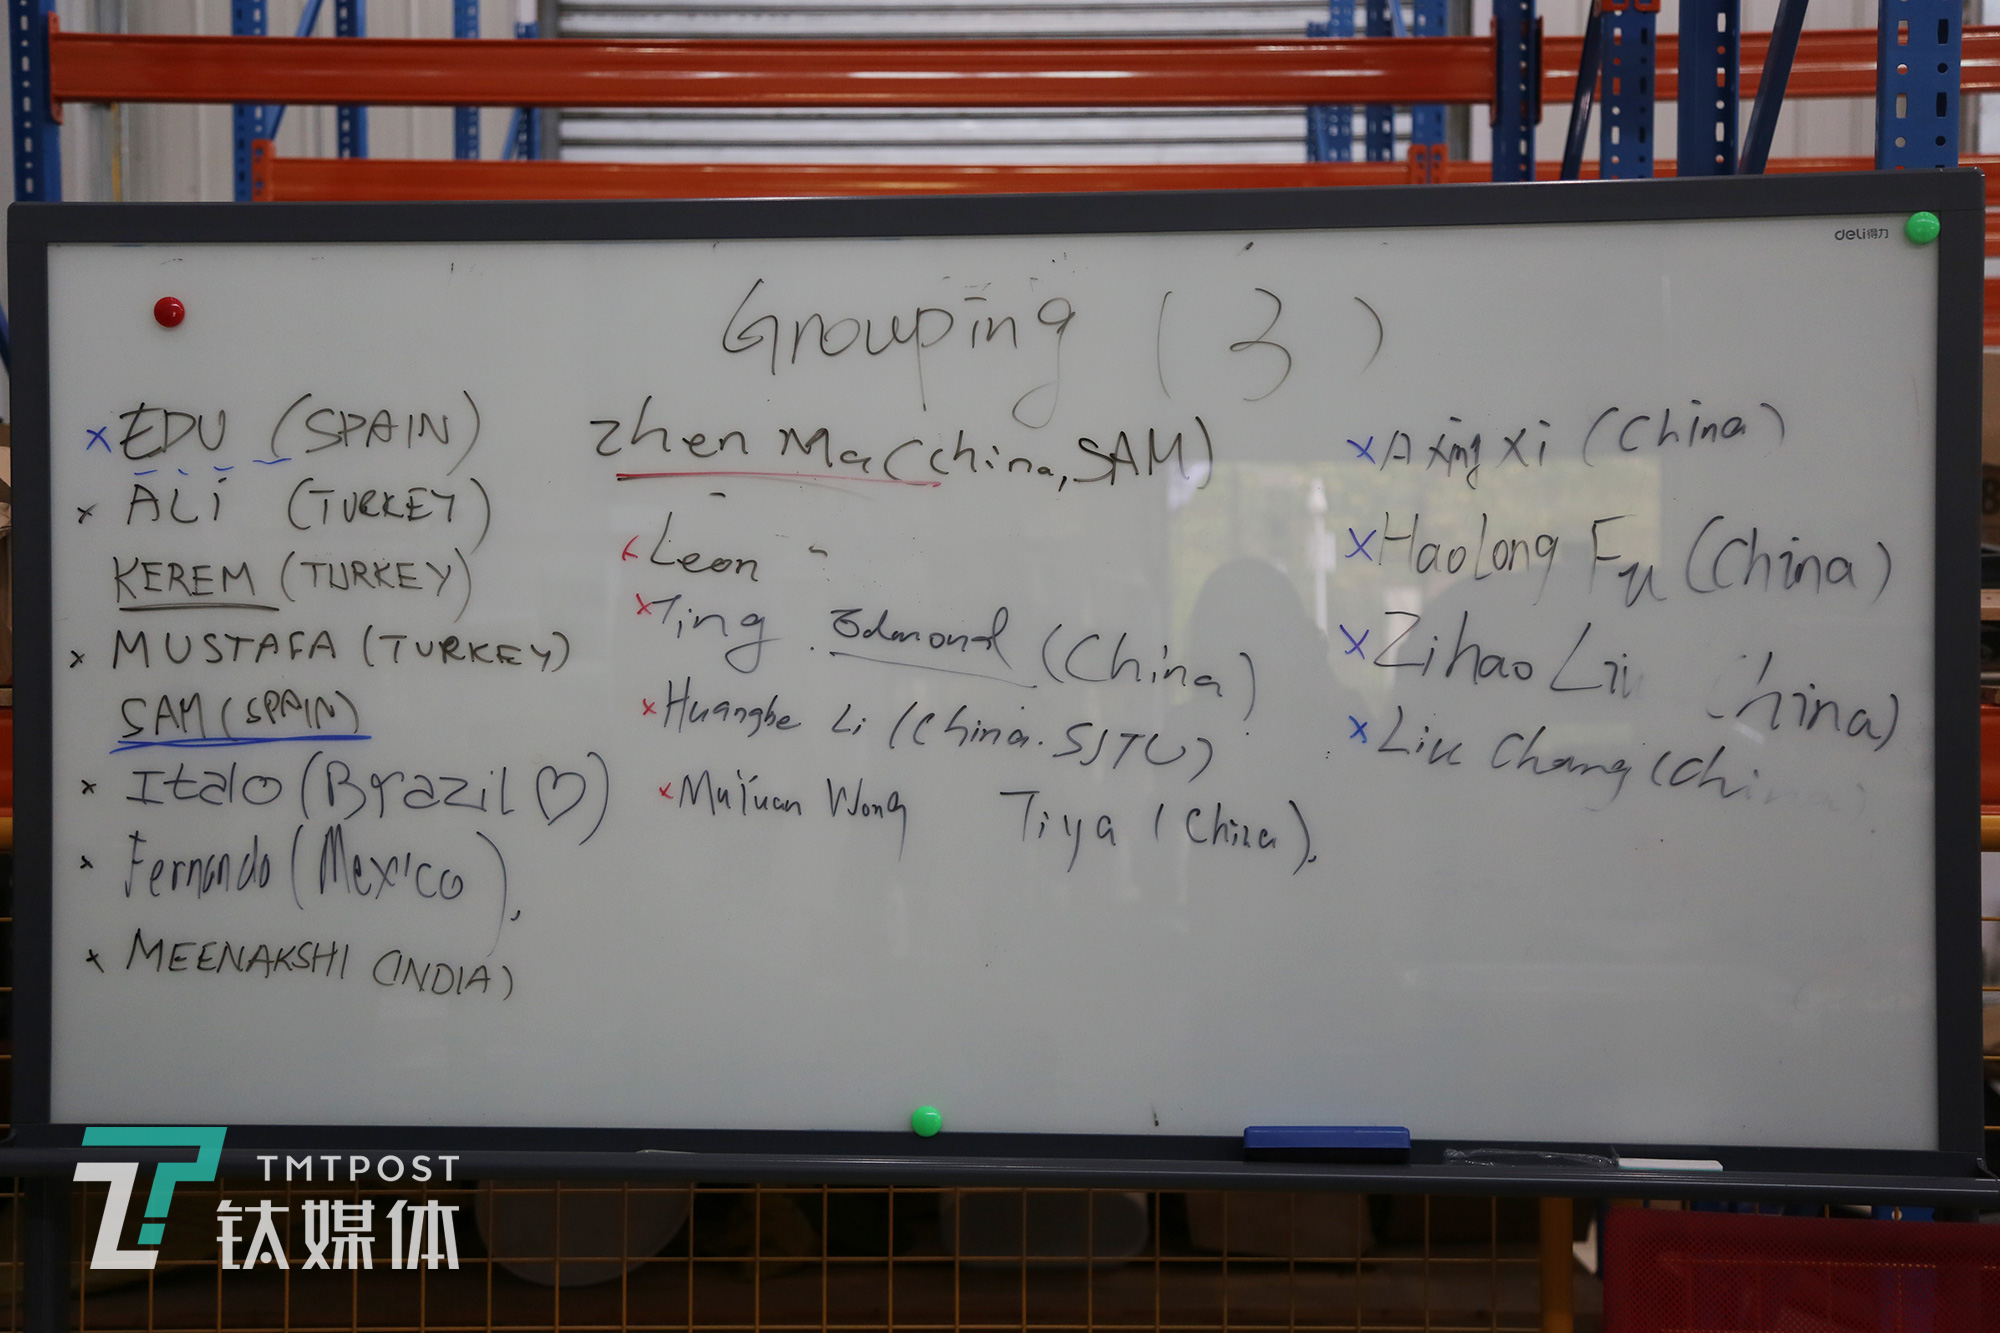 deli得力
Grouping (3)
× EDU (SPAIN)
× ALI (TURKEY)
KEREM (TURKEY)
× MUSTAFA (TURKEY)
SAM (SPAIN)
× Italo (Brazil ♡)
× Fernando (Mexico).
× MEENAKSHI (INDIA)
Zhen Ma (China, SAM)
× Leon
× Ting . Edmond (China)
× Huangbe Li (China. SJTU)
× Muyuan Wong
Tiya (China).
× A xing xi (China)
× Haolong Fu (China)
× Zihao Liu China)
× Liu Chang (China)
TMTPOST
钛媒体